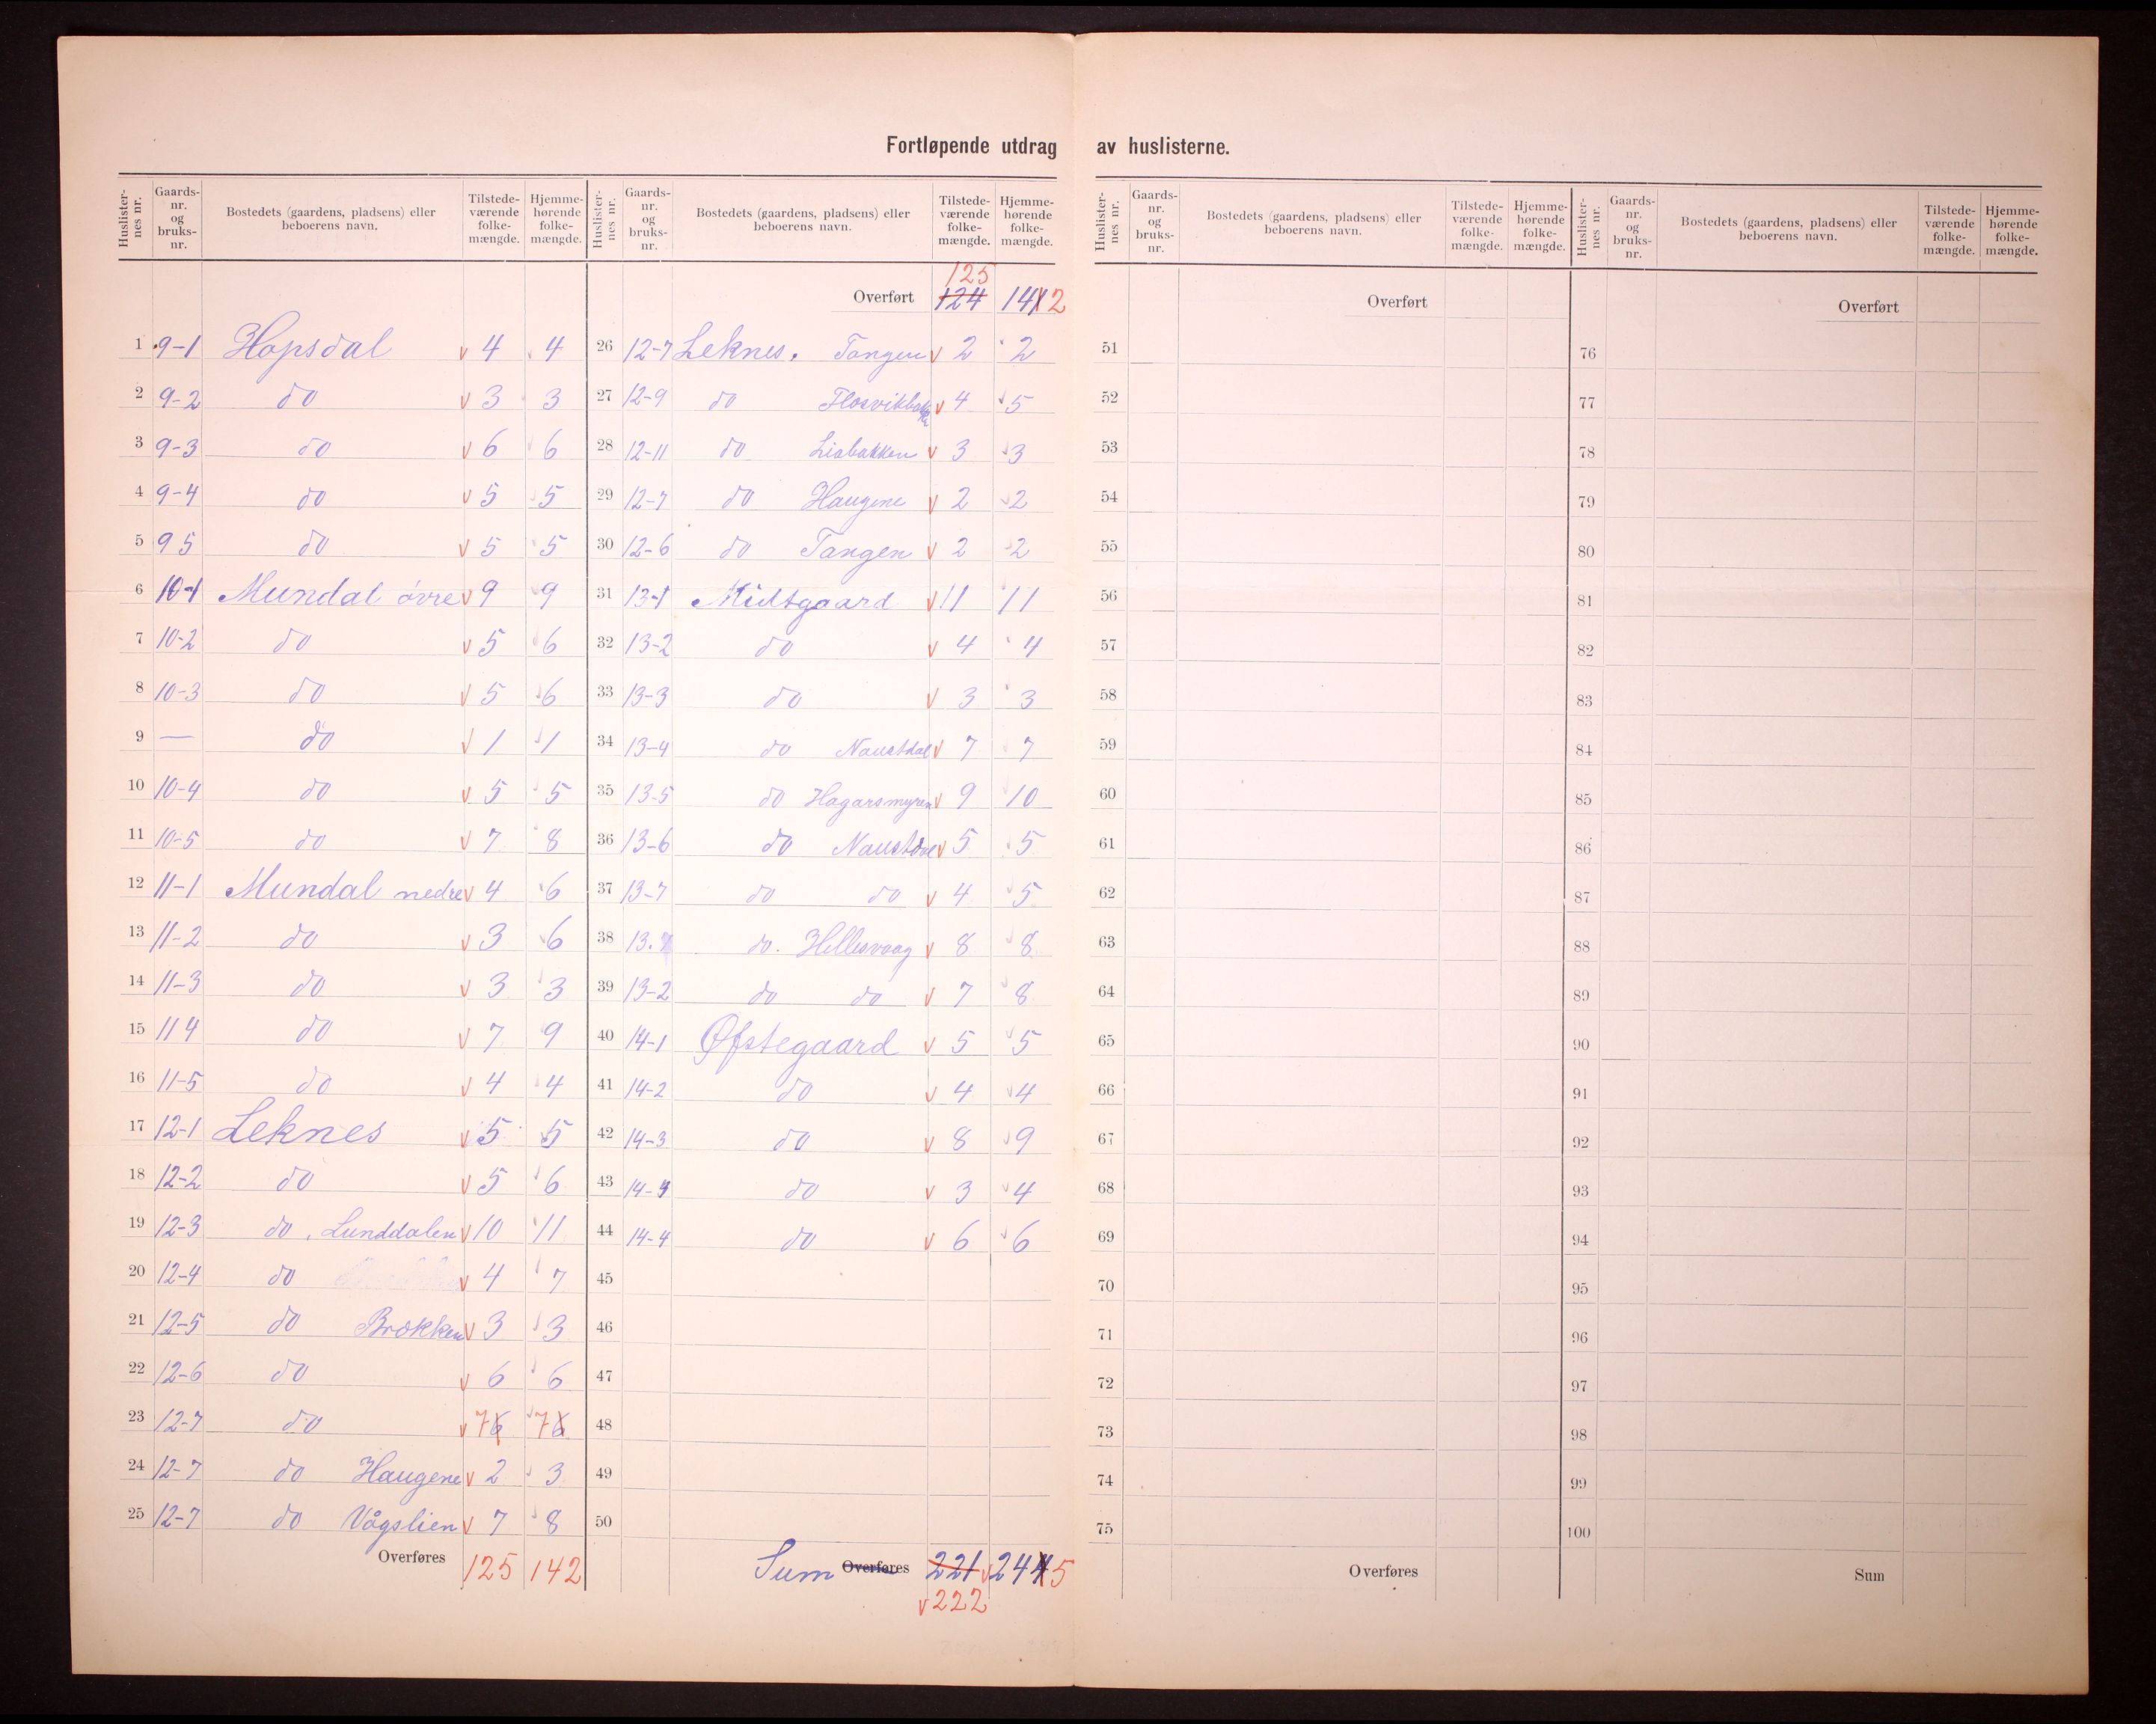 Fortløpende utdrag av huslisterne.
Huslisternes nr. Gaardsnr. og bruksnr. Bostedets (gaardens, pladsens) eller beboerens navn. Tilstedeværende folkemængde. Hjemmehørende folkemængde.
1 9-1 Hopsdal 4 4
2 9-2 do 3 3
3 9-3 do 6 6
4 9-4 do 5 5
5 9 5 do 5 5
6 10-1 Mundal øvre 9 9
7 10-2 do 5 6
8 10-3 do 5 6
9 — do 1 1
10 10-4 do 5 5
11 10-5 do 7 8
12 11-1 Mundal nedre 4 6
13 11-2 do 3 6
14 11-3 do 3 3
15 11 4 do 7 9
16 11-5 do 4 4
17 12-1 Leknes 5 5
18 12-2 do 5 6
19 12-3 do, Lunddalen 10 11
20 12-4 do 4 7
21 12-5 do Brokken 3 3
22 12-6 do 6 6
23 12-7 do 7 6 7 6
24 12-7 do Haugene 2 3
25 12-7 do Vågslien 7 8
Overføres 125 142
Huslisternes nr. Gaardsnr. og bruksnr. Bostedets (gaardens, pladsens) eller beboerens navn. Tilstedeværende folkemængde. Hjemmehørende folkemængde.
125
Overført 124 141 2
26 12-7 Leknes. Tangen 2 2
27 12-9 do Flosvikbakke 4 5
28 12-11 do Liabakken 3 3
29 12-7 do Haugene 2 2
30 12-6 do Tangen 2 2
31 13-1 Midtgaard 11 11
32 13-2 do 4 4
33 13-3 do 3 3
34 13-4 do Naustdal 7 7
35 13-5 do Hagarsmyren 9 10
36 13-6 do Naustdal 5 5
37 13-7 do do 4 5
38 13. do. Hellesvaag 8 8
39 13-2 do do 7 8
40 14-1 Øfstegaard 5 5
41 14-2 do 4 4
42 14-3 do 8 9
43 14-4 do 3 4
44 14-4 do 6 6
45
46
47
48
49
50
Sum Overføres 221 244 5
222
Huslisternes nr. Gaardsnr. og bruksnr. Bostedets (gaardens, pladsens) eller beboerens navn. Tilstedeværende folkemængde. Hjemmehørende folkemængde.
Overført
51
52
53
54
55
56
57
58
59
60
61
62
63
64
65
66
67
68
69
70
71
72
73
74
75
Overføres
Huslisternes nr. Gaardsnr. og bruksnr. Bostedets (gaardens, pladsens) eller beboerens navn. Tilstedeværende folkemængde. Hjemmehørende folkemængde.
Overført
76
77
78
79
80
81
82
83
84
85
86
87
88
89
90
91
92
93
94
95
96
97
98
99
100
Sum